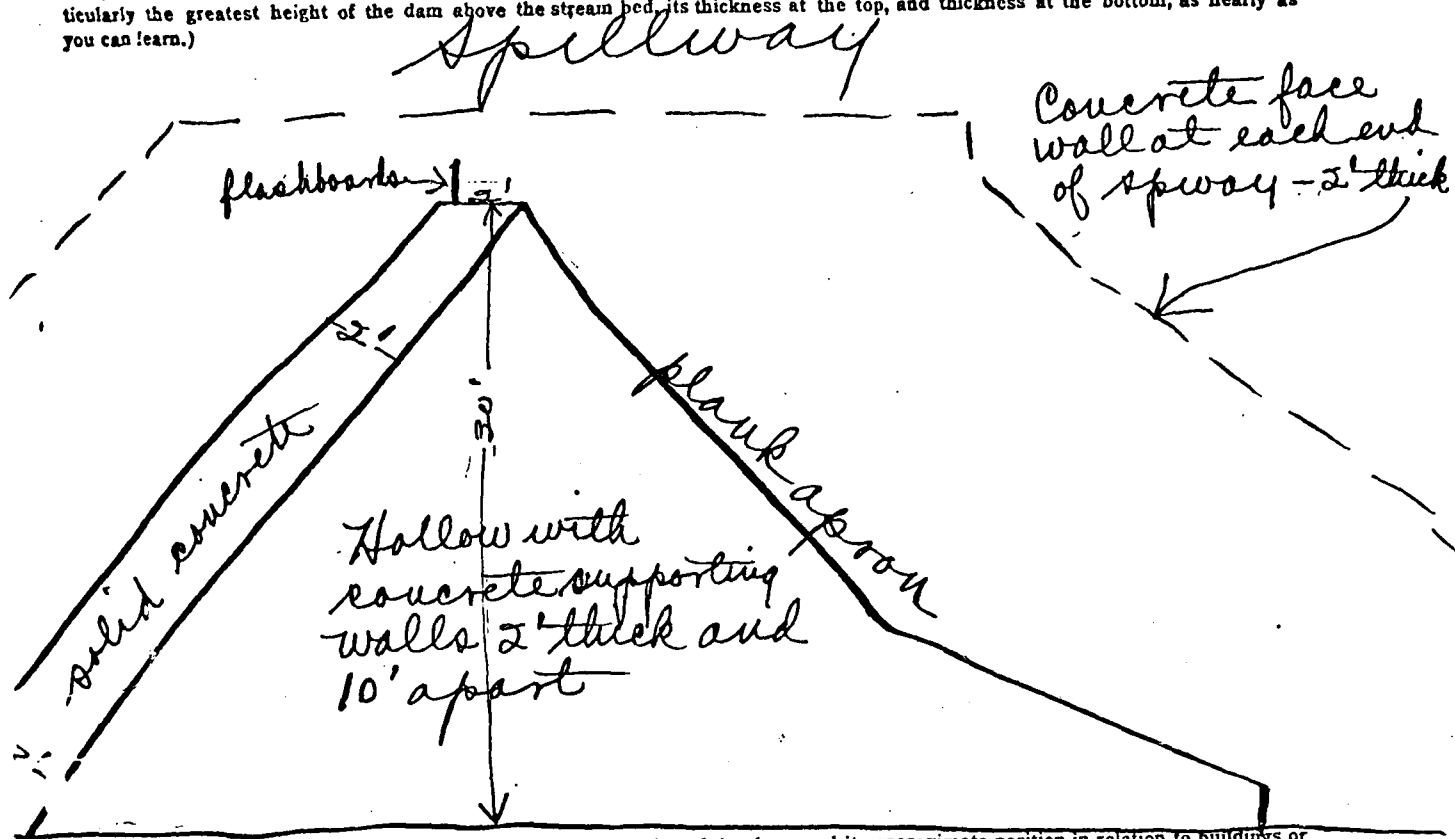 ticularly the greatest height of the dam above the stream bed, its thickness at the top, and thickness at the bottom, as nearly as
you can learn.)
Spillway
Concrete face
wall at each end
of spway - 2' thick
flashboards
2'
2'
30'
solid concrete
plank apron
Hollow with
concrete supporting
walls 2' thick and
10' apart
position in relation to buildings or